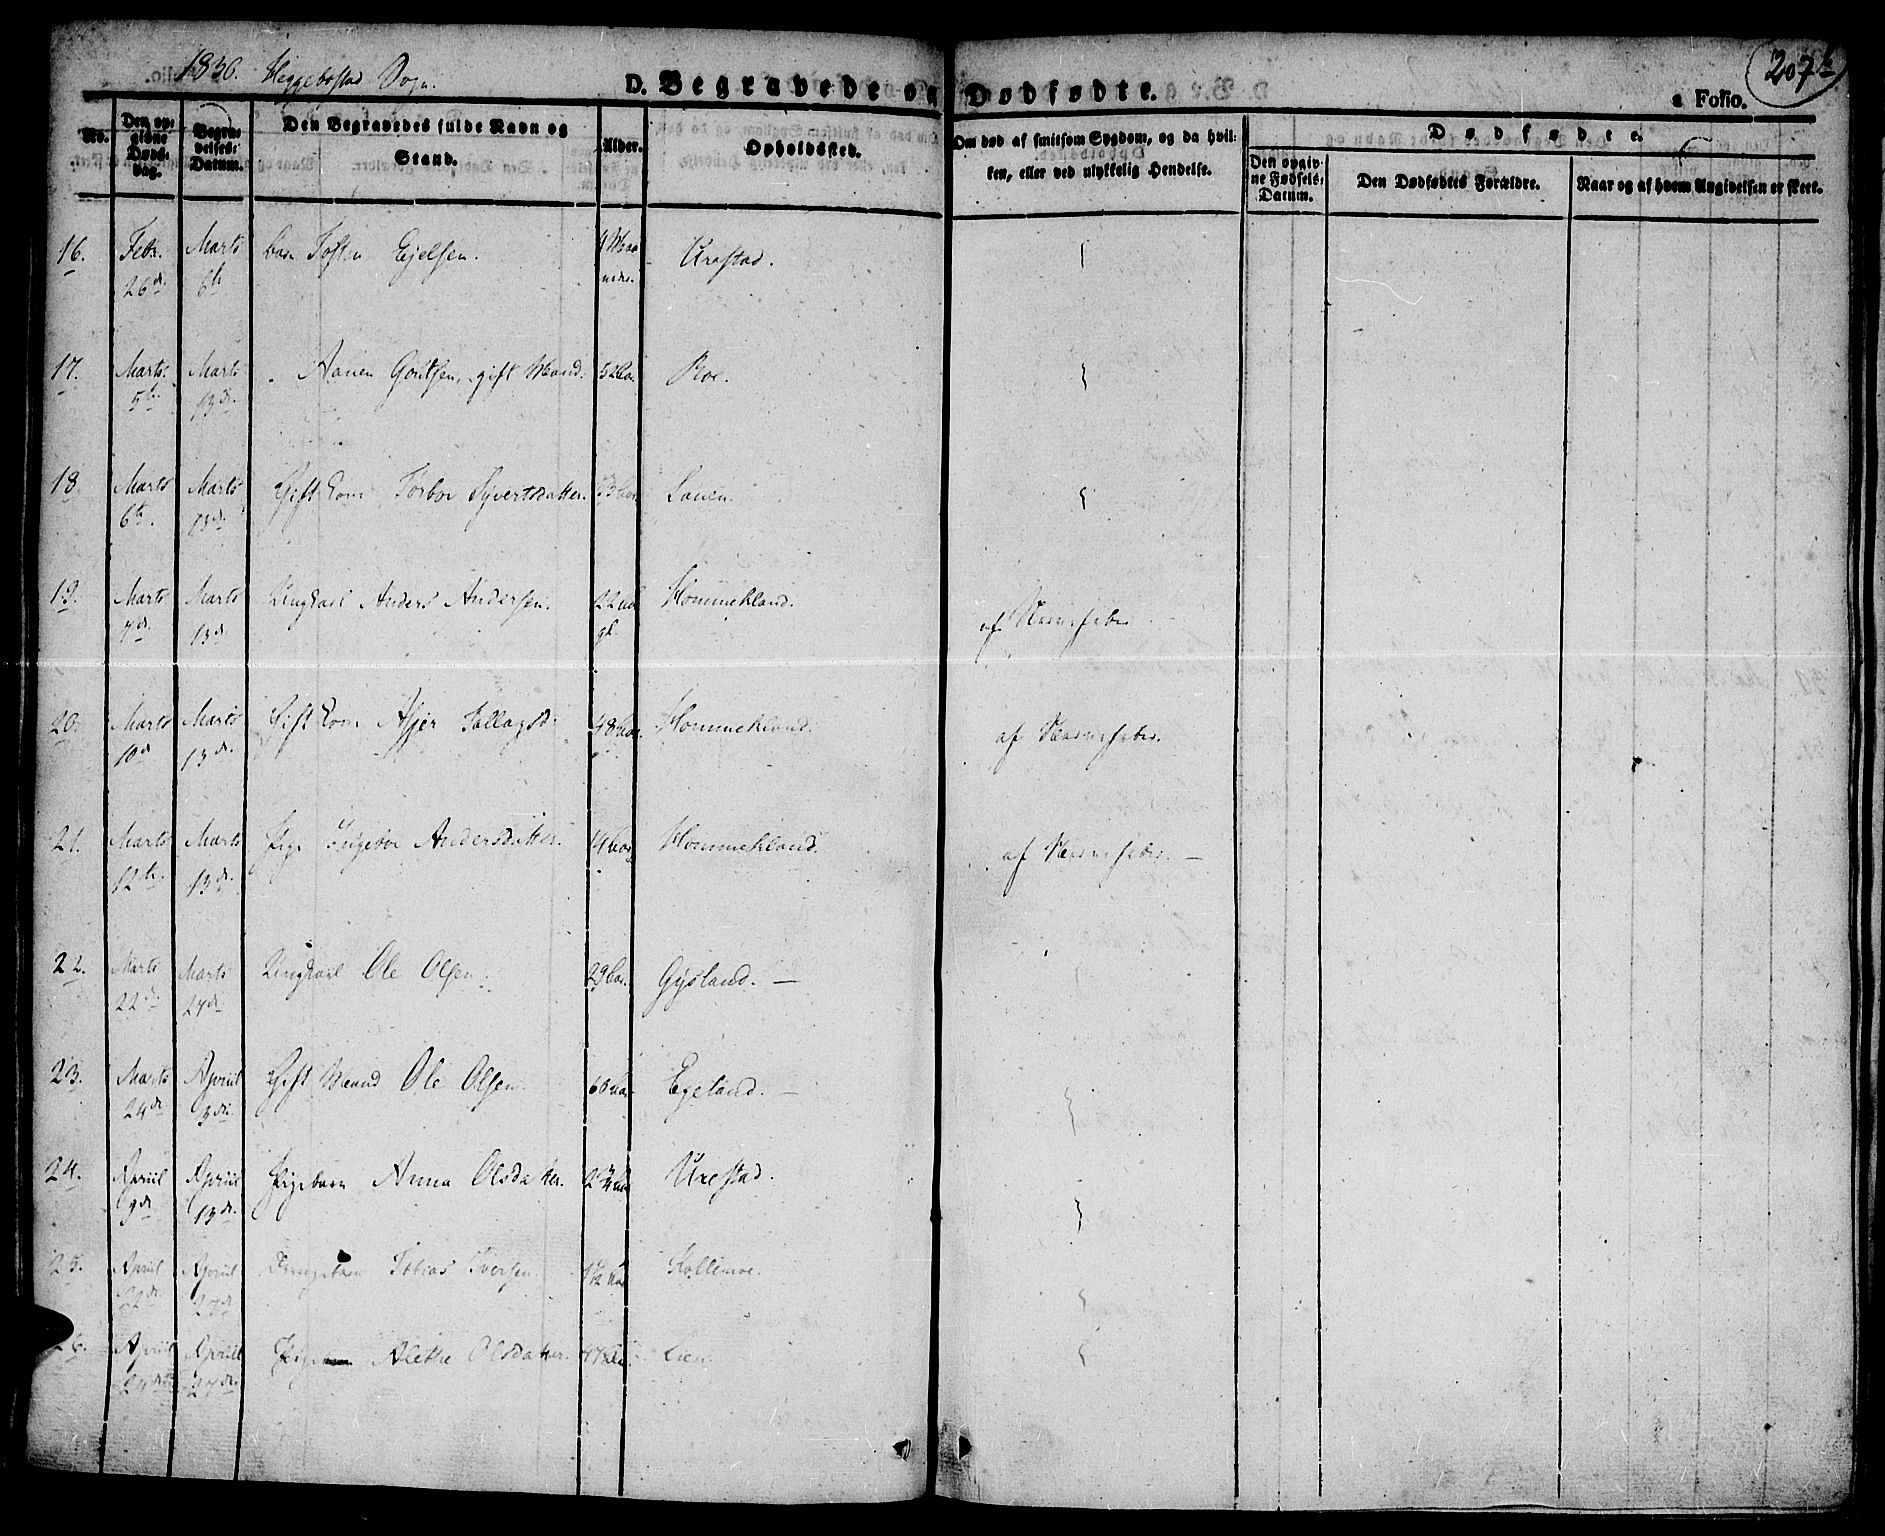 1836. Heggebostad Sogn.
D. Begravede og Dødfødte.
207
a Folio.
No.
Den opgivne Døds-dag.
Begravelses-Datum.
Den Begravedes fulde Navn og Stand.
Alder.
Opholdssted.
Om død af smitsom Sygdom, og da hvilken, eller ved ulykkelig Hendelse.
Dødfødte.
Den opgivne Fødsels-Datum.
Den Dødfødtes Forældre.
Naar og af hvem Angivelsen er skeet.
16. Febr. 26d. Marts 6te Barn Tosten Ejelsen. Urestad.
17. Marts 5te Marts 13de. Aanen Gontsen, gift Mand. 52 Aar. Roe.
18. Marts 6te. Marts 13de. Gift Kone Torbor Syvertsdatter. 53 Aar. Lauen.
19. Marts 7de. Marts 13de. Ungkarl Anders Andersen. 22 Aar gl. Hommekland. af Nervefeber
20. Marts 10de Marts 13de. Gift Kone Asjer Tallagsd. 48 Aar. Hommekland. af Nervefeber.
21. Marts 12te. Marts 13de. Pige Ingebor Andersdatter. 14 Aar Hommekland. af Nervefeber. —
22. Marts 22de Marts 27de Ungkarl Ole Olsen. 29 Aar. Gysland. —
23. Marts 24de April 3die. Gift Mand Ole Olsen. 60 Aar Egeland. —
24. April 9de April 13de. Pigebarn Anna Olsdatter. Urestad.
25. April April 27de Drengebarn Tobias Iversen. 1½ Aar Kollemoe.
26. April April 27de. Pige Alethe Olsdatter. 17 Aar. Lien